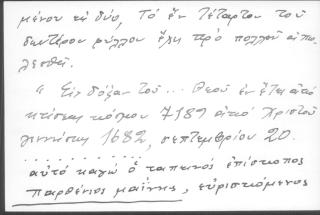 μένον εἰς δύο, τὸ ἓν τέταρτον τοῦ
δευτέρου φύλλου ἔχει πρὸ πολλοῦ ἀπο-
λεσθεῖ.
"Εἰς δόξαν τοῦ... Θεοῦ ἐν ἔτει ἀπὸ
κτίσεως κόσμου 7189 ἀπὸ Χριστοῦ
γεννήσεως 1682, σεπτεμβρίου 20.
..............
αὐτὸ καγὼ ὁ ταπεινὸς ἐπίσκοπος
παρθένιος μαΐνης, εὑρισκόμενος